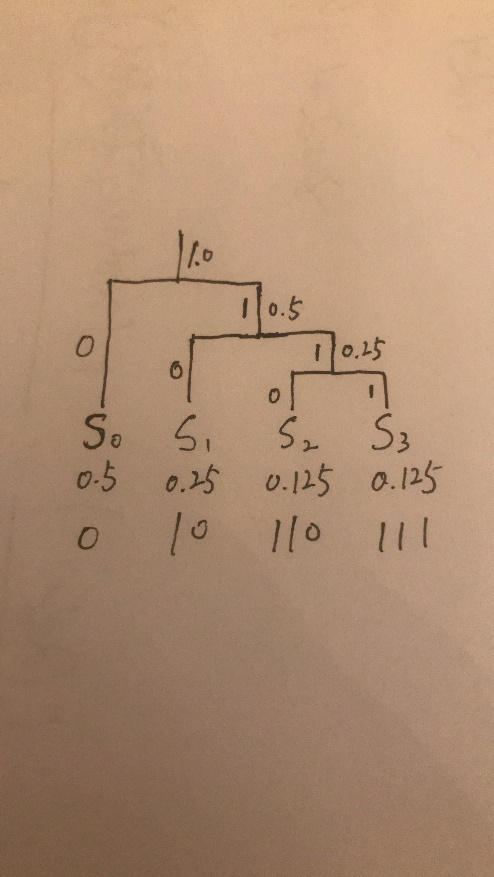 1.0
1 0.5
0 0 1 0.25
0 1
S₀ S₁ S₂ S₃
0.5 0.25 0.125 0.125
0 10 110 111